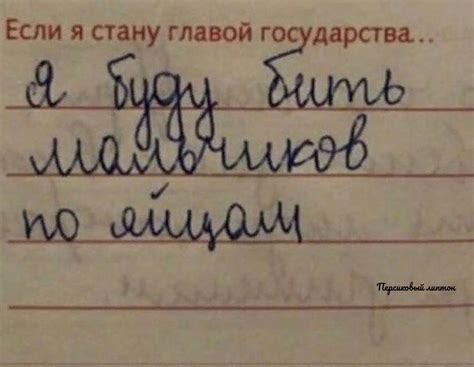 Если я стану главой государства...
я буду бить
мальчиков
по яйцам
Персиковый липтон